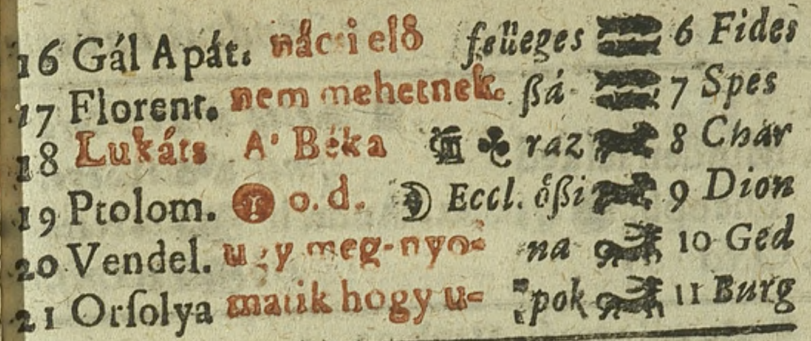 16 Gál Apát. nác i elő felleges 6 Fides
17 Florent. nem mehetnek. ßá- 7 Spes
18 Lukáts A' Béka raz 8 Char
19 Ptolom. o. d. Eccl. ößi 9 Dion
20 Vendel. u y meg-nyo- na 10 Ged
21 Orſolya matik hogy u- pok 11 Burg